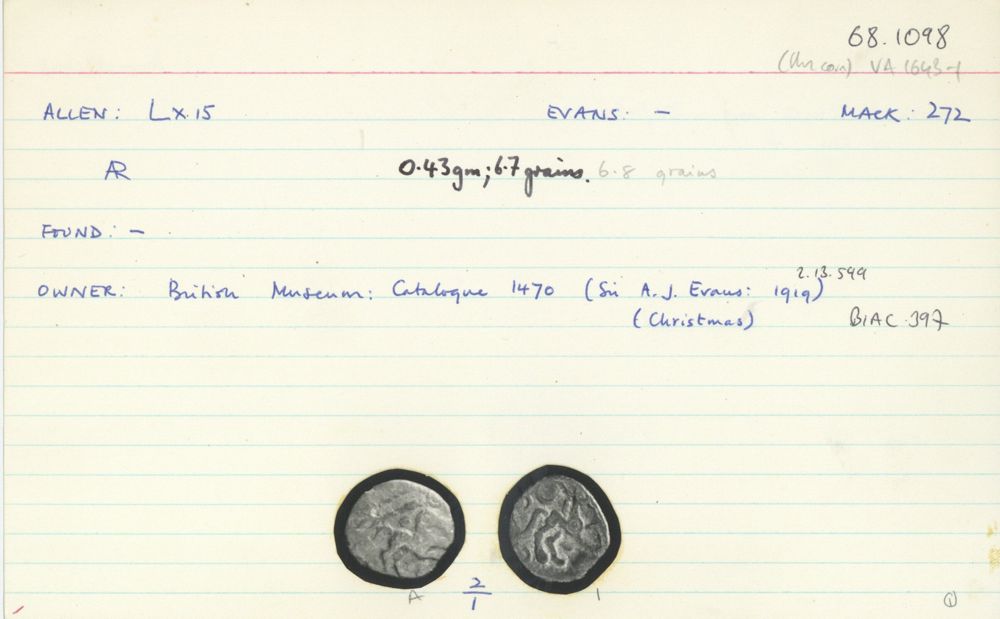 68.1098
VA 1643-1
ALLEN: LX.15 EVANS: — MACK: 272
AR 0.43gm; 6.7 grains. 6.8 grains
FOUND: —
2.13.599
OWNER: British Museum: Catalogue 1470 (Sir A.J. Evans: 1919)
(Christmas) BIAC.397
A 2/1 1 1